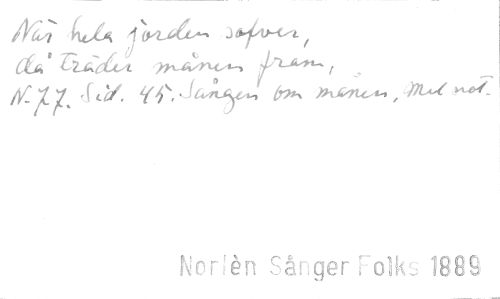 När hela jorden sofver,
då träder månen fram,
N. 77. Sid. 45. Sången om månen, Med not.
Norlèn Sånger Folks 1889